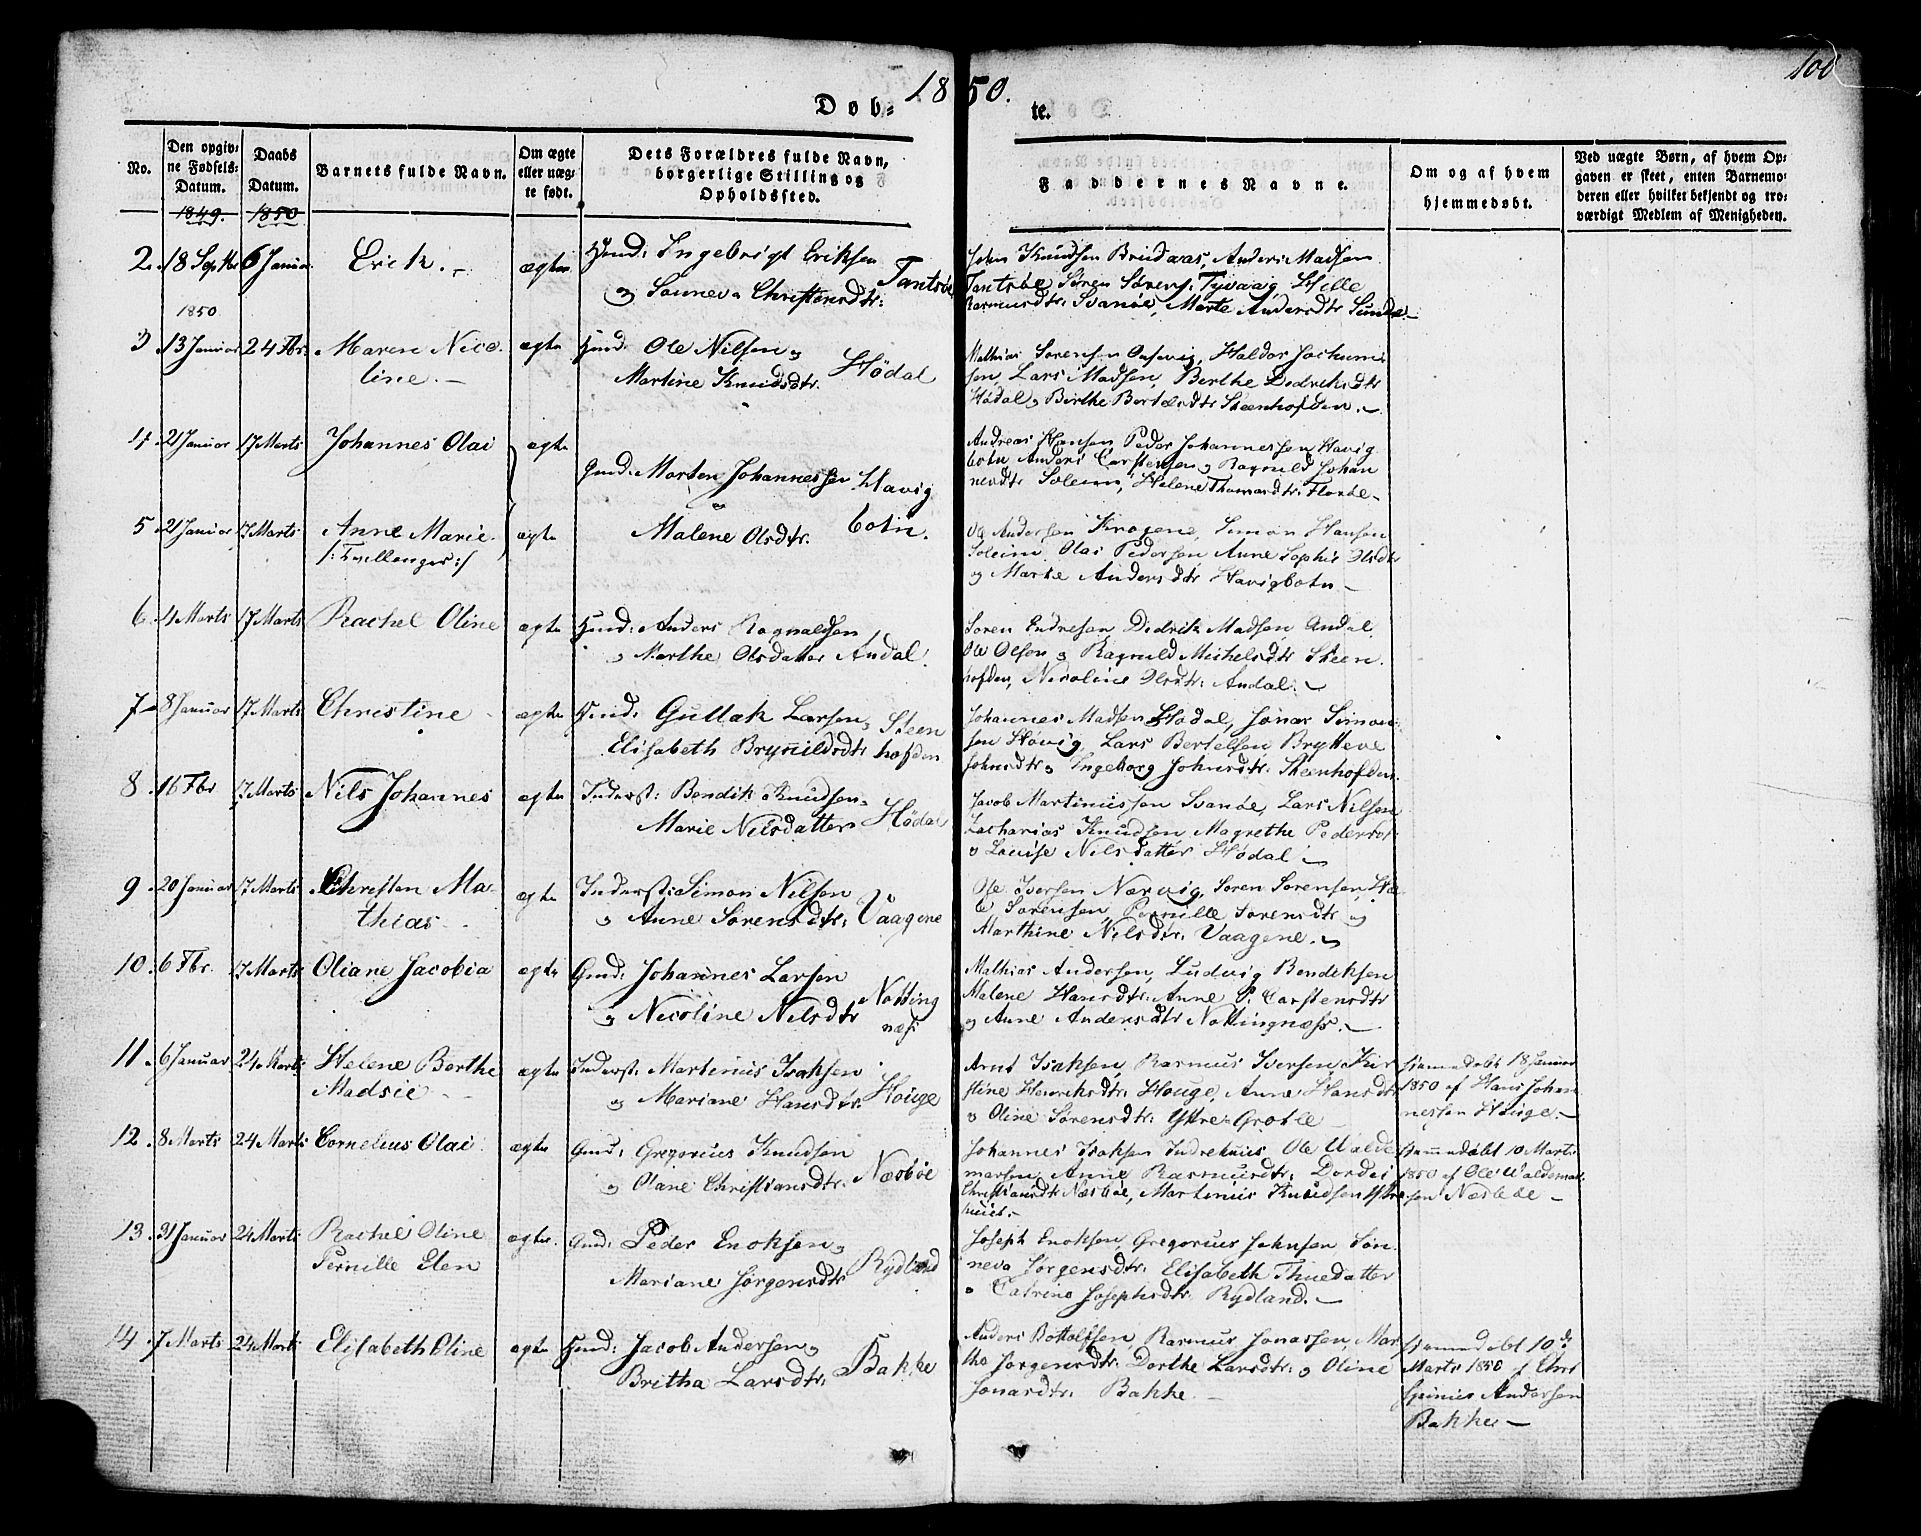 1850.
100
Døb-
te.
No.
Den opgiv-
ne Fødsels-
Datum.
Daabs
Datum.
Barnets fulde Navn.
Om ægte
eller uæg-
te født.
Dets Forældres fulde Navn,
borgerlige Stilling og
Opholdssted.
Faddernes Navne.
Om og af hvem
hjemmedøbt.
Ved uægte Børn, af hvem Op-
gaven er skeet, enten Barnemo-
deren eller hvilket bekjendt og tro-
værdigt Medlem af Menigheden.
1849. 1850
2. 18 Septbr 6 Januar Erick. ægte Huusd: Ingebrigt Eriksen
o Sünneva Christensdtr: Tantsøe
John Knudsen Brudaas, Anders Madsen
Tantsøe Søren Sørens: Tyvaag Hille
Rasmusdtr: Svanøe, Marte Andersdtr
1850
3. 13 Januar 24 Fbr. Maren Nico-
line.
ægte Huusd: Ole Nilsen o
Martine Knudsdtr. Hødal
Mathias Sørensen Haldor Jochum-
sen, Lars Madsen, Berthe Dedriksdtr
Hødal o Birthe Bertelsdtr Steenhofden.
4. 21 Januar 17 Marts Johannes Olai ægte
Gmd: Morten Johannessen Havig
o
Malene Olsdtr. botn.
Andreas Hansen Peder Johannessen Havig
botn Anders Carstensen o Ragnild Johan
nesdtr Soleim, Helene Thomasdtr: Florøe
5. 21 Januar 17 Marts Anne Marie
/: Tvillinger :/
ægte
Ole Andersen Krogene, Simon Hansen
Soleim, Olai Pedersen Anne Sophie Olsdtr
o Marte Andersdtr Havigbotn
6. 4 Marts 17 Marts Rachel Oline ægte Huusd: Anders Ragnaldsen
o Marthe Olsdatter Andal.
Søren Endresen, Didrik Madsen Andal.
Ole Olson o Ragnild Michelsdtr Steen
hofden, Nicoline Olsdtr: Andal.
7. 8 Januar 17 Marts Christine ægte Huusd: Gullak Larsen o
Elisabeth Brynildsdtr Steen
hofden
Johannes Madsen Hødal, Jonas Simon-
sen Høvig, Lars Bertelsen Brytteve
Johnsdtr o Ingeborg Johnsdtr: Steenhofden.
8. 16 Fbr 17 Marts Nils Johannes ægte Inderst: Bendik Knudsen o
Marie Nilsdatter Hødal
Jacob Martinussen Svanøe, Lars Nilsen
Zacharias Knudsen Magrethe Pedersdtr
o Lovise Nilsdatter Hødal
9. 20 Januar 17 Marts Christen Ma-
thias
ægte Inderst: Simon Nilsen
o Anne Sørensdtr: Vaagene
Ole Iversen Nærvig, Søren Sørensen,
Sørensen, Pernille Sørensdtr o
Marthine Nilsdtr: Vaagene.
10. 6 Fbr. 17 Marts Oliane Jacobia ægte Gmd: Johannes Larsen
o Nicoline Nilsdtr Nøtting
næss
Mathias Andersen, Ludvig Bendiksen
Malene Hansdtr: Anne P. Carstensdtr
o Anne Andersdtr Nøttingnæss.
11. 6 Januar 24 Marts Helene Berthe
Madsie
ægte Inderst: Martinus Isaksen
o Mariane Hansdtr: Houge
Arnt Isaksen, Rasmus Iversen, Kir
stine Henriksdtr: Houge, Anne Hansdtr
o Oline Sørensdtr: Yttre-Grotle
Hjemmedøbt 18 Januar
1850 af Hans Johan
nessen Houge.
12. 8 Marts 24 Marts Cornelius Olai ægte Gmd: Gregorius Knudsen
o Olane Christiansdtr: Næsbøe
Johannes Isaksen Indrehuus Ole Walde
marsen, Anne Rasmusdtr: Dordei
Christiansdtr Næsbøe, Martinus Knudsen Yttre
huus.
Hjemmedøbt 10 Marts
1850 af Ole Waldemar-
sen Næsbøe
13. 31 Januar 24 Marts Rachel Oline
Pernille Elen
ægte. Gmd: Peder Enoksen o
Mariane Jørgensdtr Rydland
Joseph Enoksen, Gregorius Johnsen Søn
neva Jørgensdtr: Elisabeth Thuedatter
o Catrine Josephsdtr. Rydland.
14. 7 Marts 24 Marts Elisabeth Oline ægte Huusd: Jacob Andersen o
Britha Larsdtr: Bakke
Anders Bottolfsen, Rasmus Jonassen, Mar
the Jørgensdtr: Dorthe Larsdtr: o Oline
Jonasdtr: Bakke.
Hjemmedøbt 10de
Marts 1850 af
Andersen
Bakke